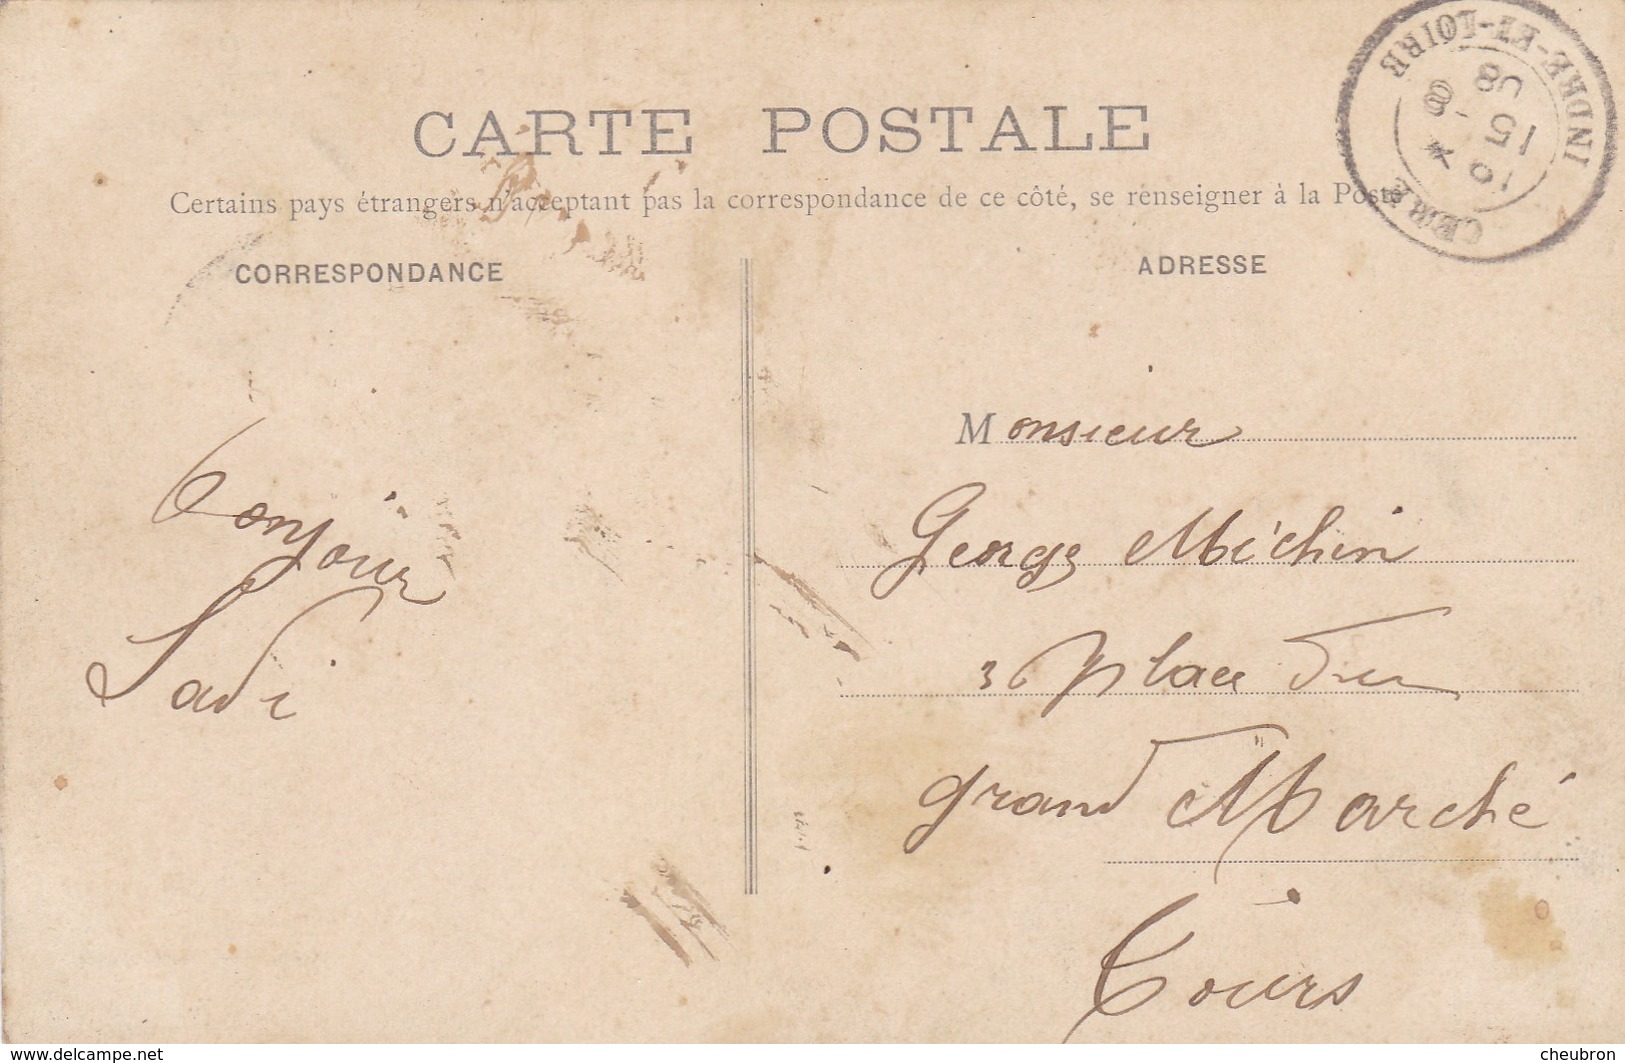 CARTE POSTALE
Certains pays étrangers n'acceptant pas la correspondance de ce côté, se renseigner à la Poste
CORRESPONDANCE
ADRESSE
INDRE-ET-LOIRE
CÉRÉ
10
15 -8
08
bonjour
Sadi
Monsieur
George Méchin
36 place du
grand Marché
Tours
www.delcampe.net
cheubron